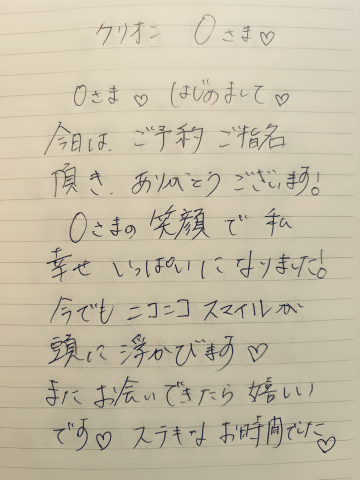 クリオン Oさま♡
Oさま♡ はじめまして♡
今日は、ご予約 ご指名
頂き、ありがとうございます!
Oさまの笑顔で 私
幸せ いっぱいになりました!
今でも ニコニコ スマイルが
頭に 浮かびます♡
また お会いできたら 嬉しい
です♡ ステキな お時間でした♡